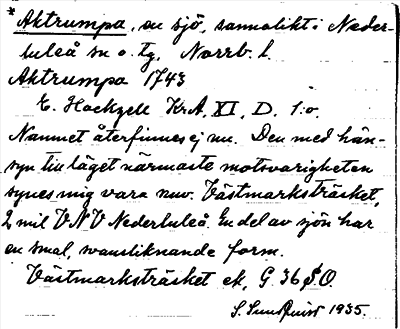 *Aktrumpa, en sjö, sannolikt i Neder-
luleå sn o. tg, Norrb. l.
Aktrumpa 1743
E. Hackzell KrA, XI, D. 1:o
Namnet återfinnes ej nu. Den med hän-
syn till läget närmaste motsvarigheten
synes mig vara nuv. Västmarksträsket,
2 mil VNV Nederluleå. En del av sjön har
en smal, svansliknande form.
Västmarksträsket ek, G. 36 SO.
S. Sundqvist 1935.